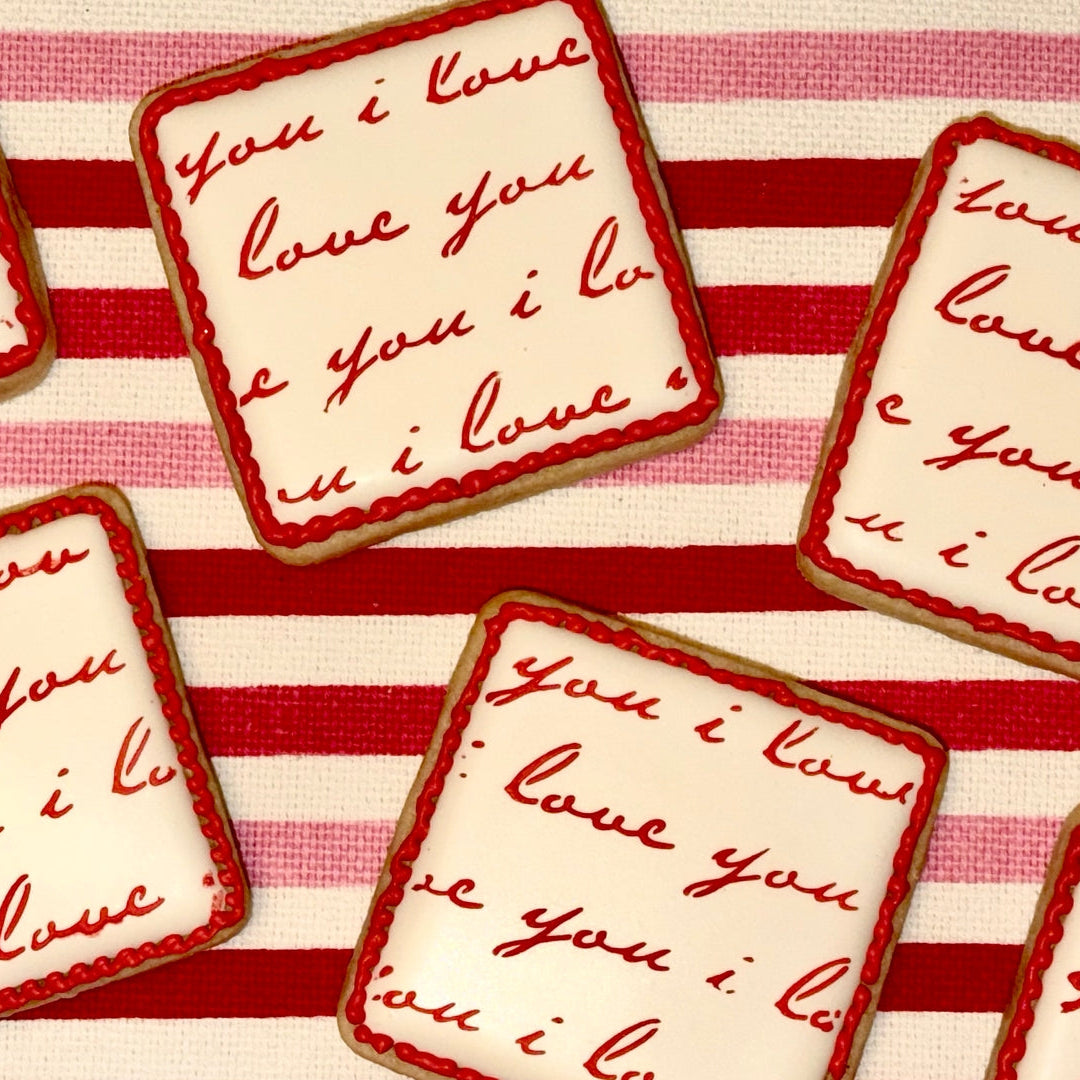 you i love
love you
e you i lo
u i love
you
love
e you
u i lo
ou
you
i lo
love
you i love
love you
e you i lo
ou i lo